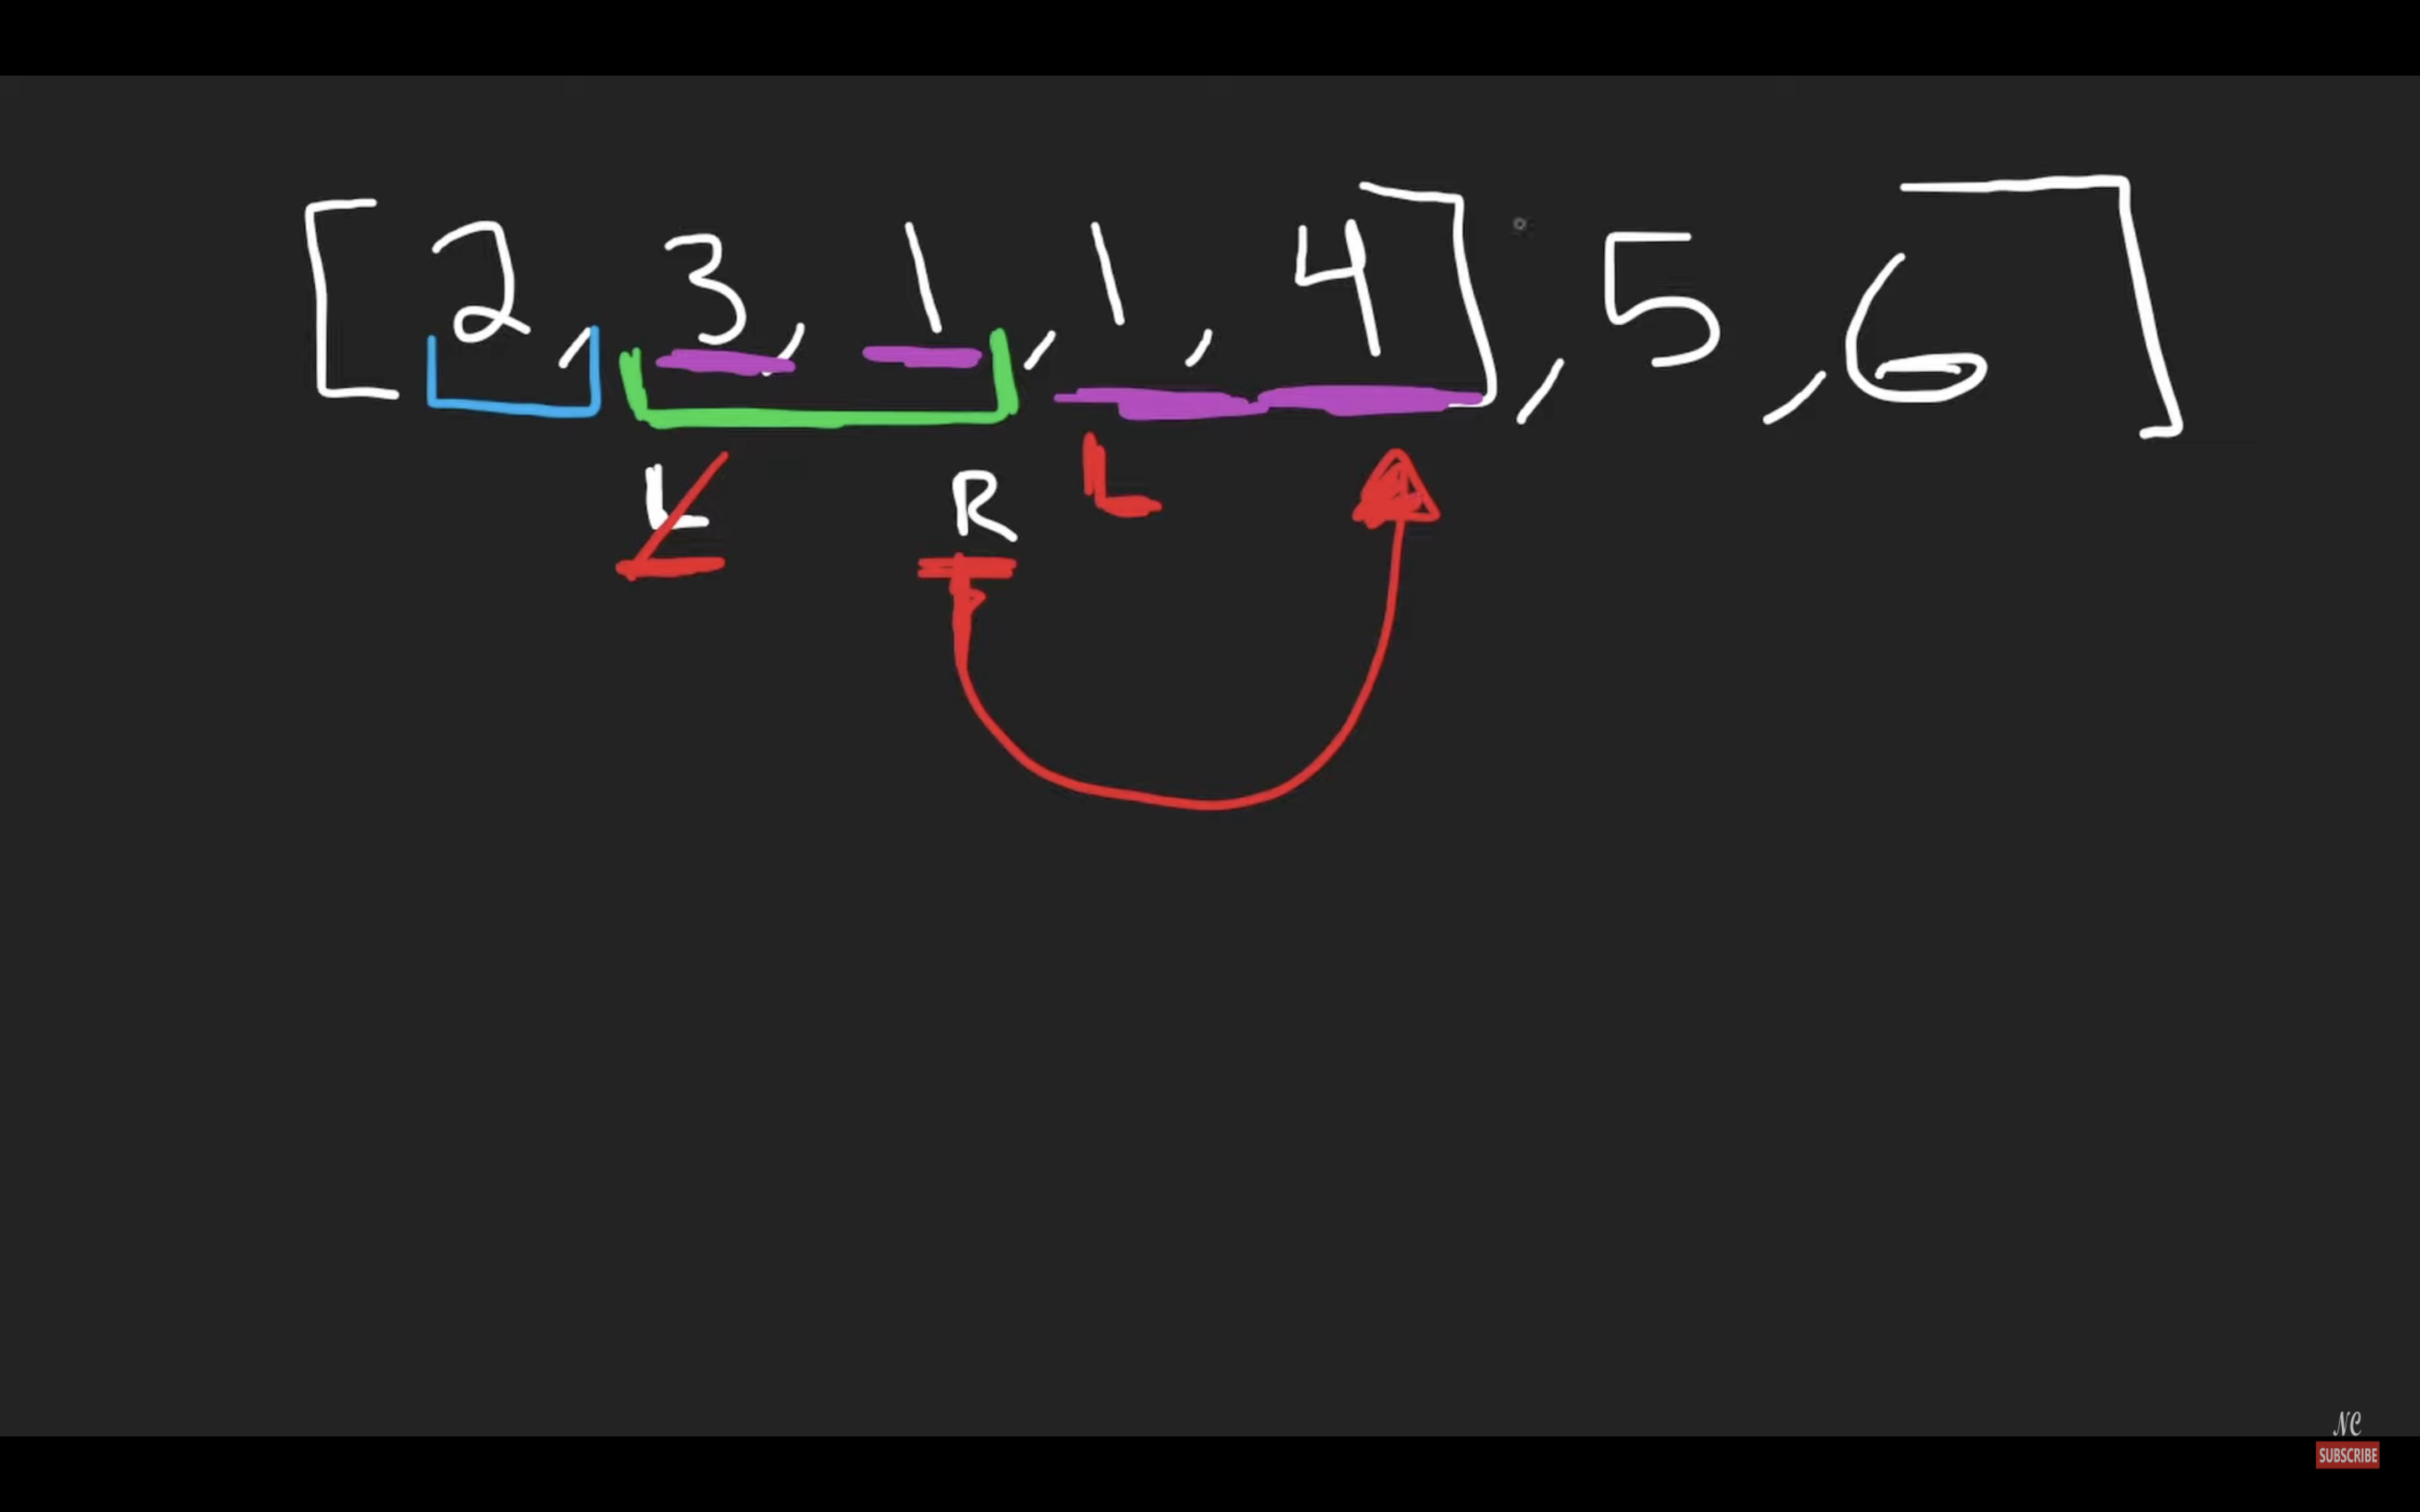 [2, 3, 1, 1, 4], 5, 6]
L R L
NC
SUBSCRIBE